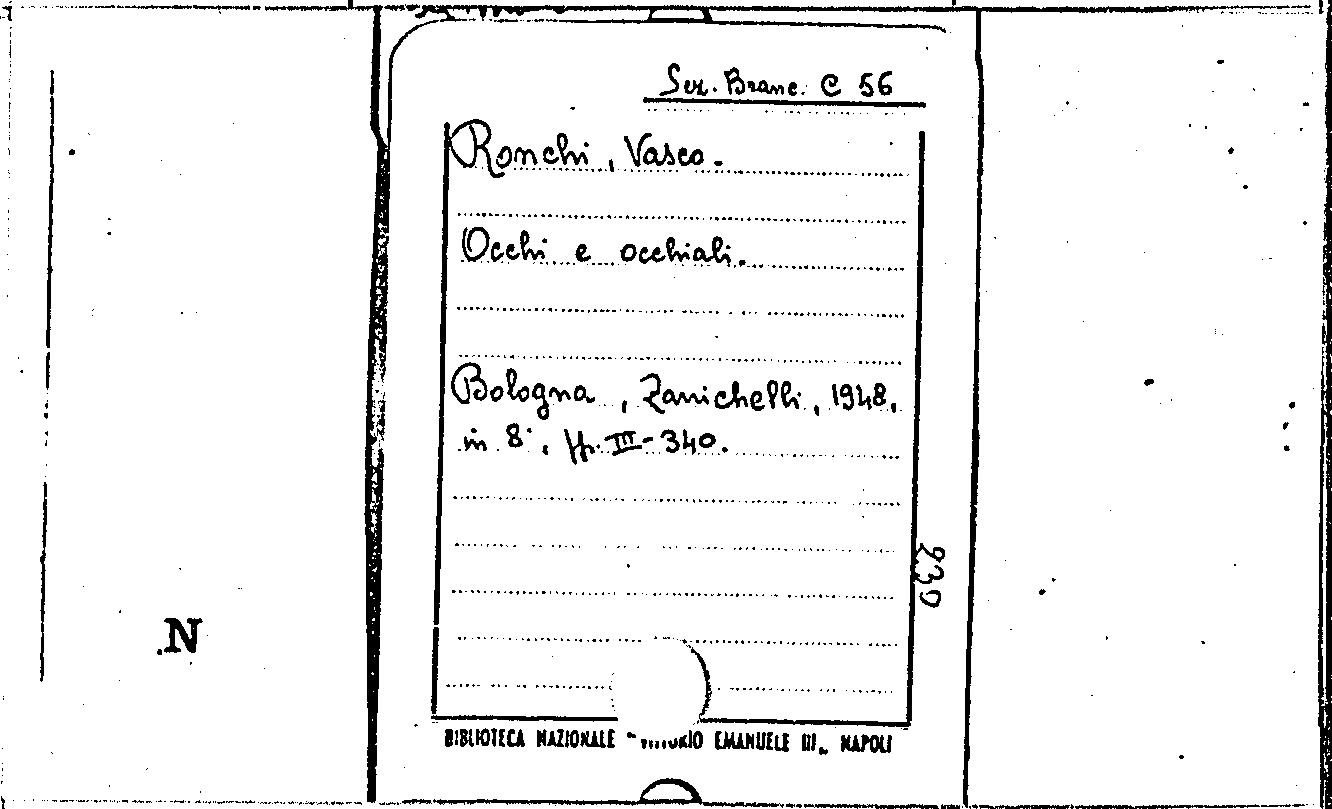 Sez. Branc. C 56
Ronchi, Vasco.
Occhi e occhiali.
Bologna, Zanichelli, 1948,
in 8°, pp. III-340.
230
N
BIBLIOTECA NAZIONALE "VITTORIO EMANUELE III„ NAPOLI